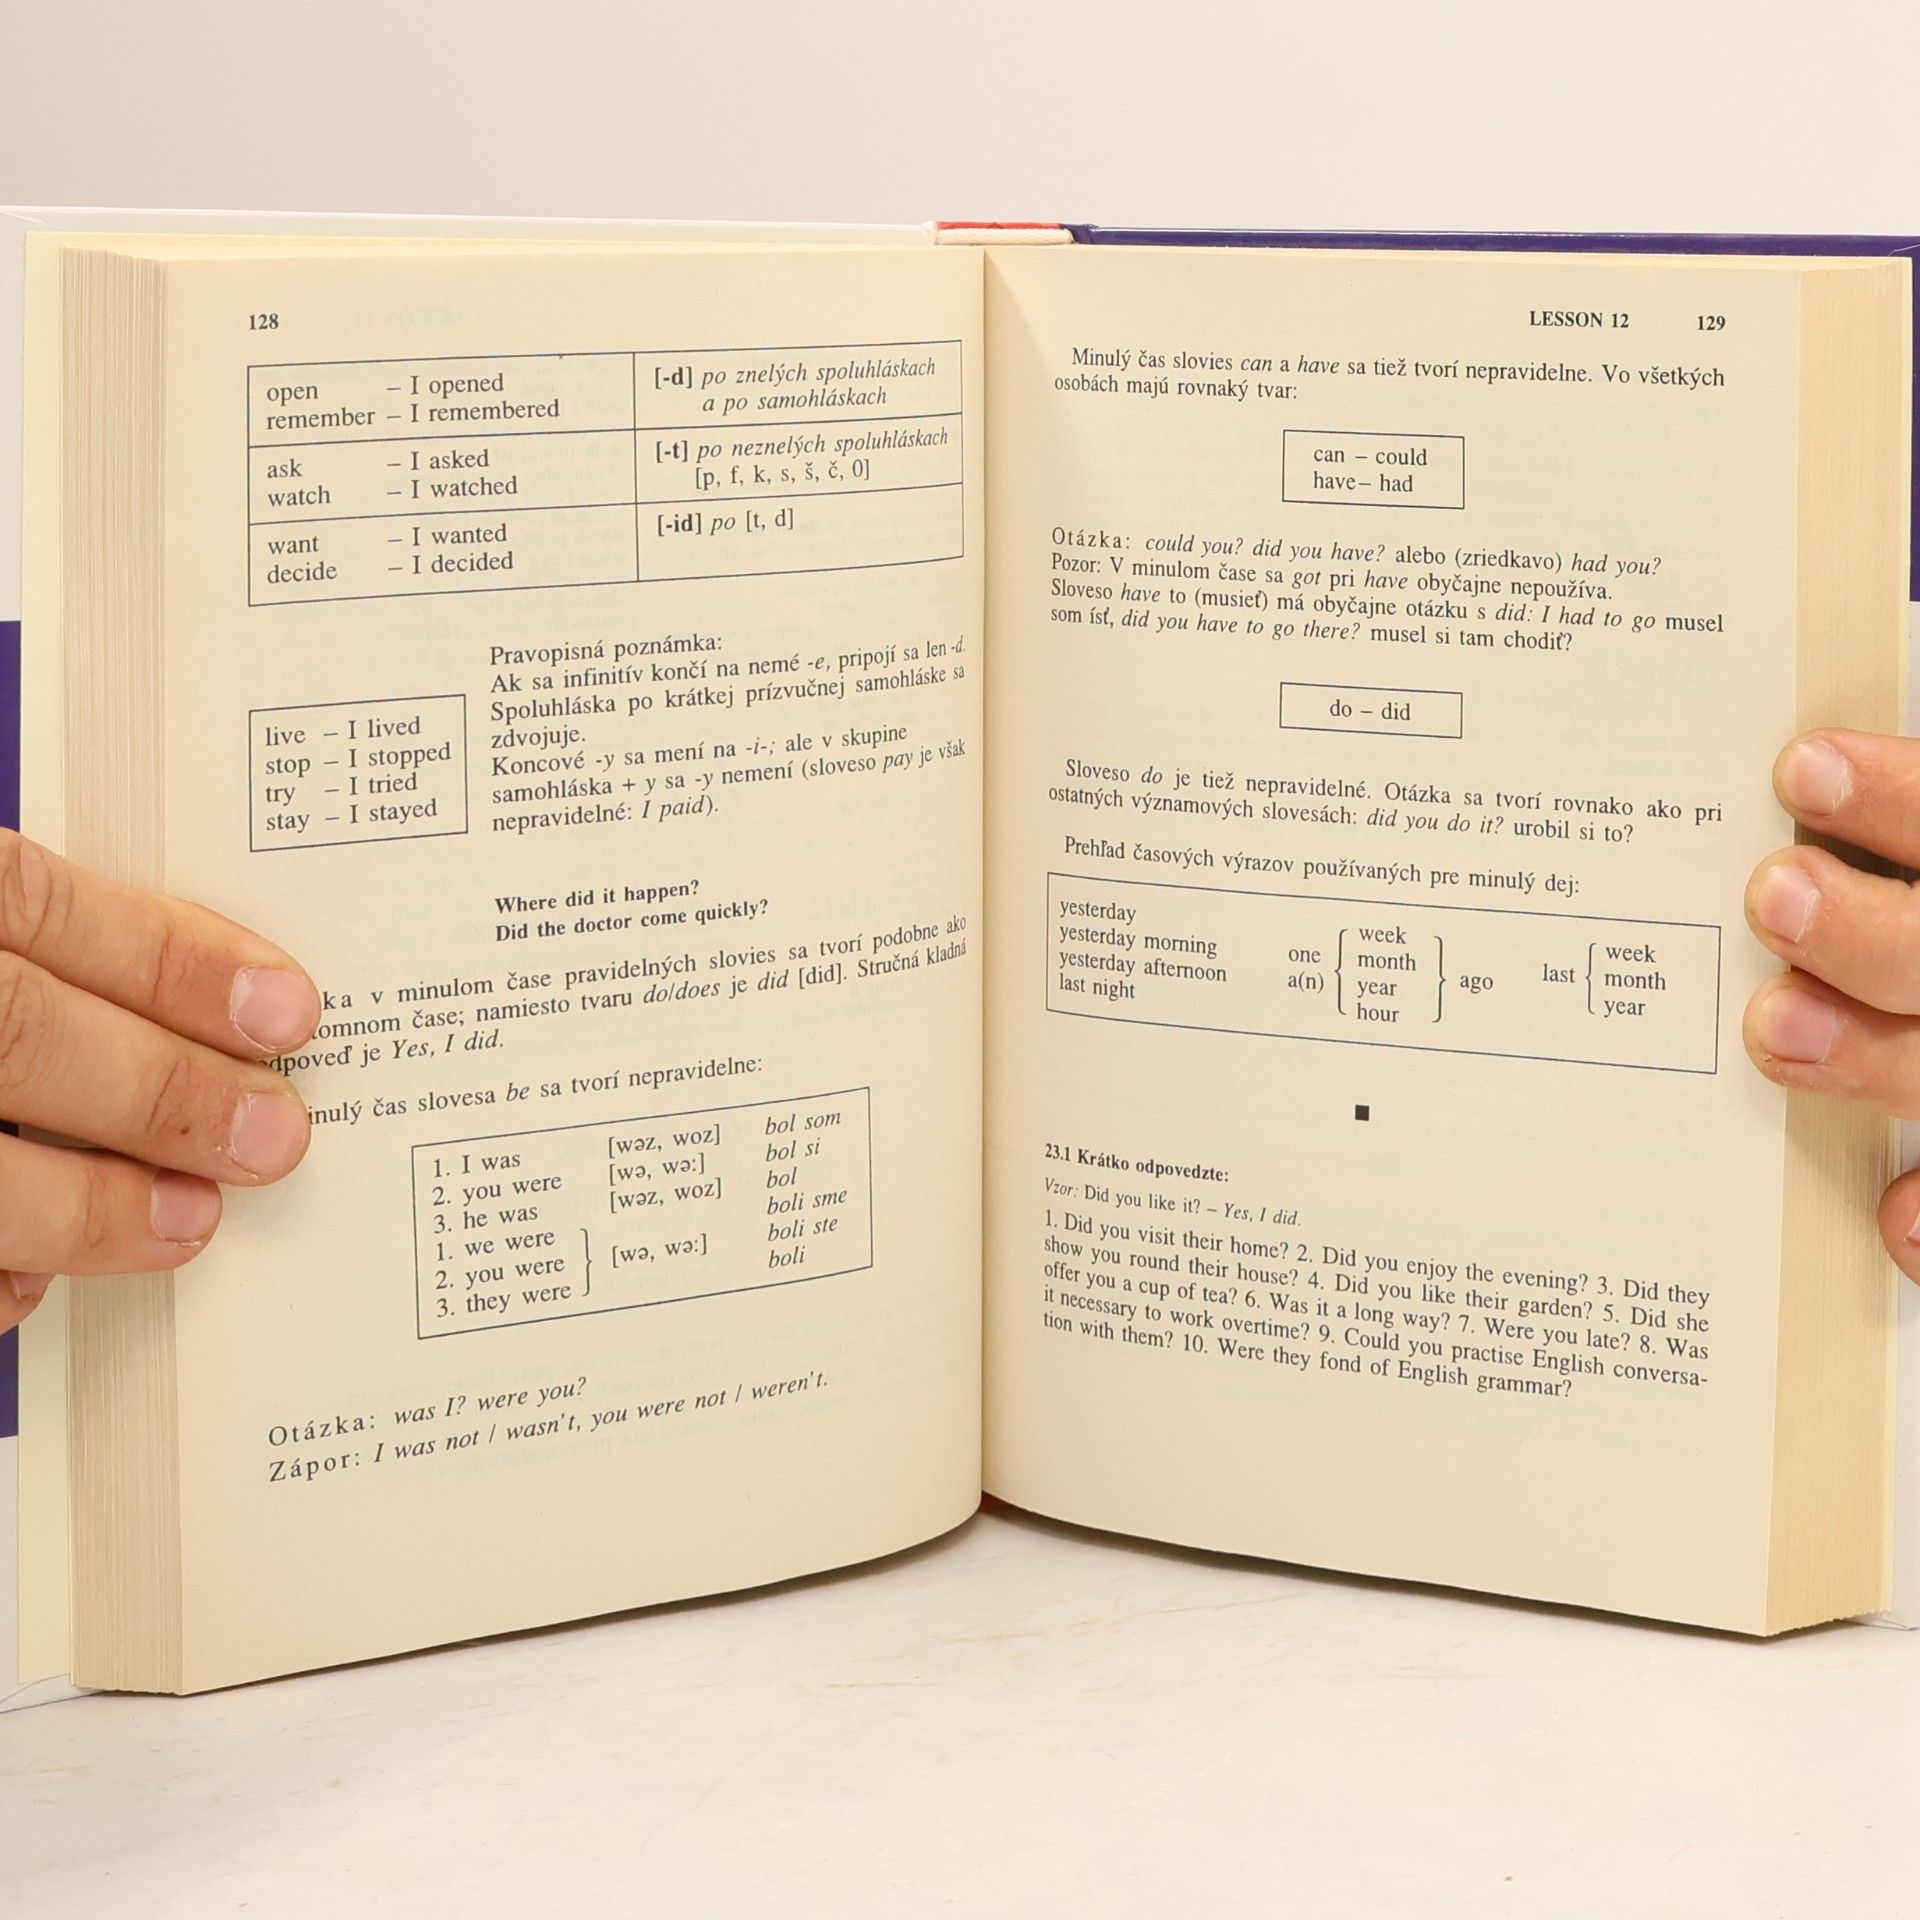 128
open – I opened [-d] po znelých spoluhláskach
remember – I remembered a po samohláskach
ask – I asked [-t] po neznelých spoluhláskach
watch – I watched [p, f, k, s, š, č, θ]
want – I wanted [-id] po [t, d]
decide – I decided
Pravopisná poznámka:
Ak sa infinitív končí na nemé -e, pripojí sa len -d.
Spoluhláska po krátkej prízvučnej samohláske sa
zdvojuje.
Koncové -y sa mení na -i-; ale v skupine
samohláska + y sa -y nemení (sloveso pay je však
nepravidelné: I paid).
live – I lived
stop – I stopped
try – I tried
stay – I stayed
Where did it happen?
Did the doctor come quickly?
ka v minulom čase pravidelných slovies sa tvorí podobne ako
tomnom čase; namiesto tvaru do/does je did [did]. Stručná kladná
dpoveď je Yes, I did.
inulý čas slovesa be sa tvorí nepravidelne:
1. I was [wəz, woz] bol som
2. you were [wə, wə:] bol si
3. he was [wəz, woz] bol
1. we were boli sme
2. you were [wə, wə:] boli ste
3. they were boli
Otázka: was I? were you?
Zápor: I was not / wasn't, you were not / weren't.
LESSON 12 129
Minulý čas slovies can a have sa tiež tvorí nepravidelne. Vo všetkých
osobách majú rovnaký tvar:
can – could
have – had
Otázka: could you? did you have? alebo (zriedkavo) had you?
Pozor: V minulom čase sa got pri have obyčajne nepoužíva.
Sloveso have to (musieť) má obyčajne otázku s did: I had to go musel
som ísť, did you have to go there? musel si tam chodiť?
do – did
Sloveso do je tiež nepravidelné. Otázka sa tvorí rovnako ako pri
ostatných významových slovesách: did you do it? urobil si to?
Prehľad časových výrazov používaných pre minulý dej:
yesterday
yesterday morning
yesterday afternoon
last night
one
a(n)
week
month
year
hour
ago
last
week
month
year
23.1 Krátko odpovedzte:
Vzor: Did you like it? – Yes, I did.
1. Did you visit their home? 2. Did you enjoy the evening? 3. Did they
show you round their house? 4. Did you like their garden? 5. Did she
offer you a cup of tea? 6. Was it a long way? 7. Were you late? 8. Was
it necessary to work overtime? 9. Could you practise English conversa-
tion with them? 10. Were they fond of English grammar?